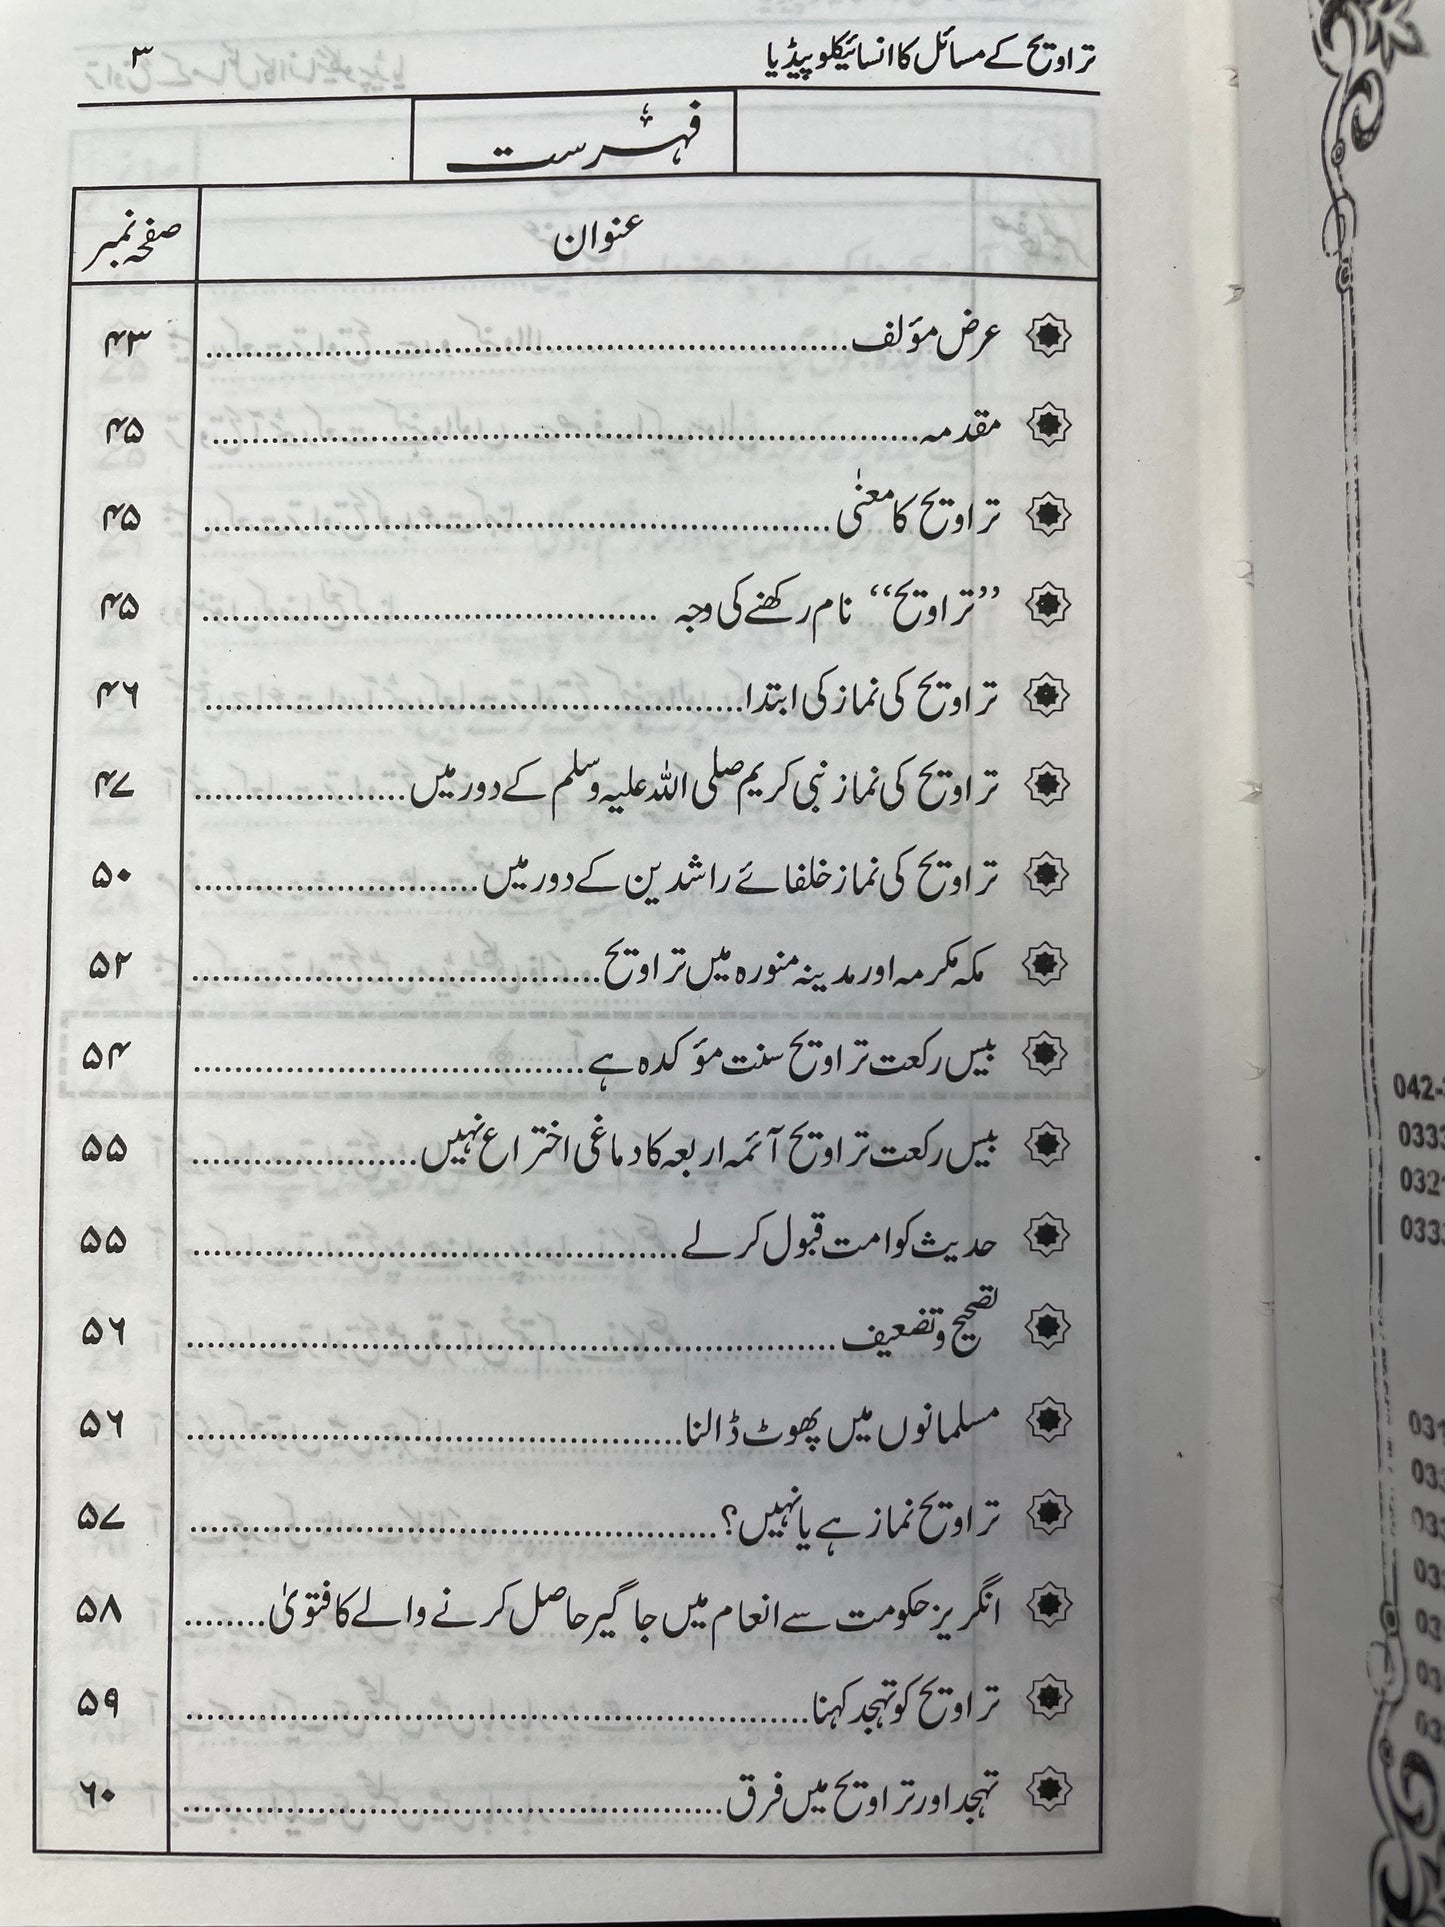 تراویح کے مسائل کا انسائیکلوپیڈیا ۳
فہرست
عنوان صفحہ نمبر
عرض مؤلف ۴۳
مقدمہ ۴۵
تراویح کا معنٰی ۴۵
’’تراویح‘‘ نام رکھنے کی وجہ ۴۵
تراویح کی نماز کی ابتدا ۴۶
تراویح کی نماز نبی کریم صلی اللہ علیہ وسلم کے دور میں ۴۷
تراویح کی نماز خلفائے راشدین کے دور میں ۵۰
مکہ مکرمہ اور مدینہ منورہ میں تراویح ۵۲
بیس رکعت تراویح سنت مؤکدہ ہے ۵۴
بیس رکعت تراویح آئمہ اربعہ کا دماغی اختراع نہیں ۵۵
حدیث کو امت قبول کرلے ۵۵
تصحیح و تضعیف ۵۶
مسلمانوں میں پھوٹ ڈالنا ۵۶
تراویح نماز ہے یا نہیں؟ ۵۷
انگریز حکومت سے انعام میں جاگیر حاصل کرنے والے کا فتویٰ ۵۸
تراویح کو تہجد کہنا ۵۹
تہجد اور تراویح میں فرق ۶۰
042-
0333
0321
0333